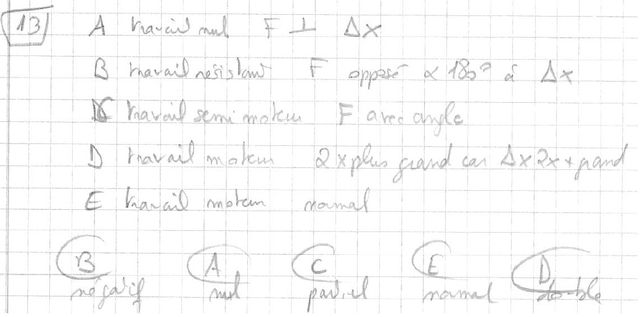 13 A travail nul F ⊥ Δx
B travail résistant F opposé α 180° à Δx
C travail semi moteur F avec angle
D travail moteur 2x plus grand car Δx 2x + grand
E travail moteur normal
B A C E D
négatif nul partiel normal double